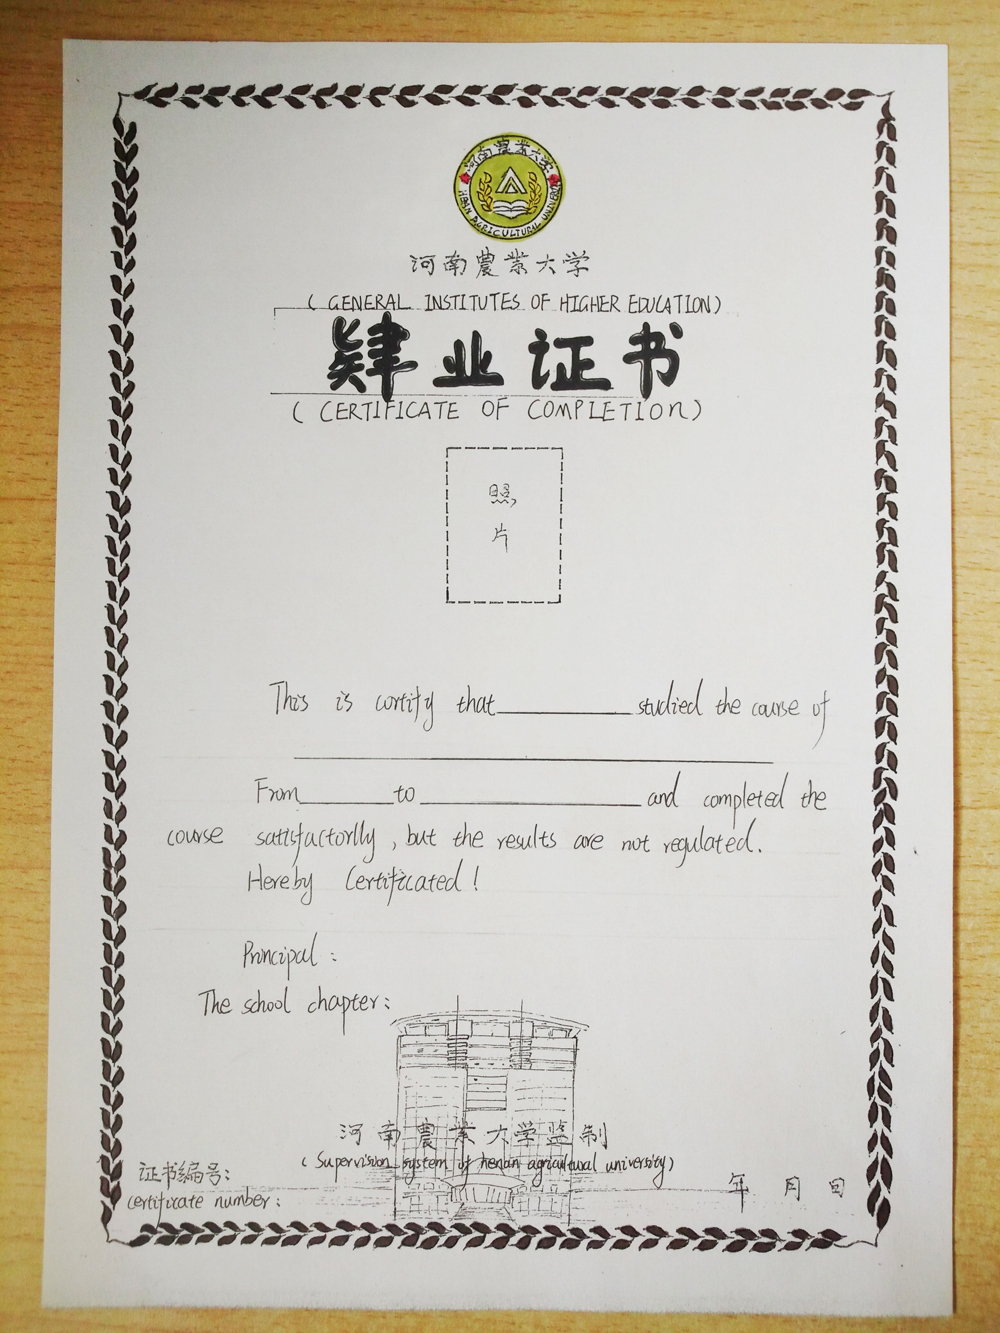 河南農業大学
HENAN AGRICULTURAL UNIVERSITY
河南農業大学
( GENERAL INSTITUTES OF HIGHER EDUCATION)
肄业证书
( CERTIFICATE OF COMPLETION)
照
片
This is cortify that studied the course of
From to and completed the
course satisfactorlly, but the results are not regulated.
Hereby Certificated!
Principal:
The school chapter:
河南農業大学监制
( Supervision system of henan agricultural university)
证书编号:
certificate number:
年 月 日